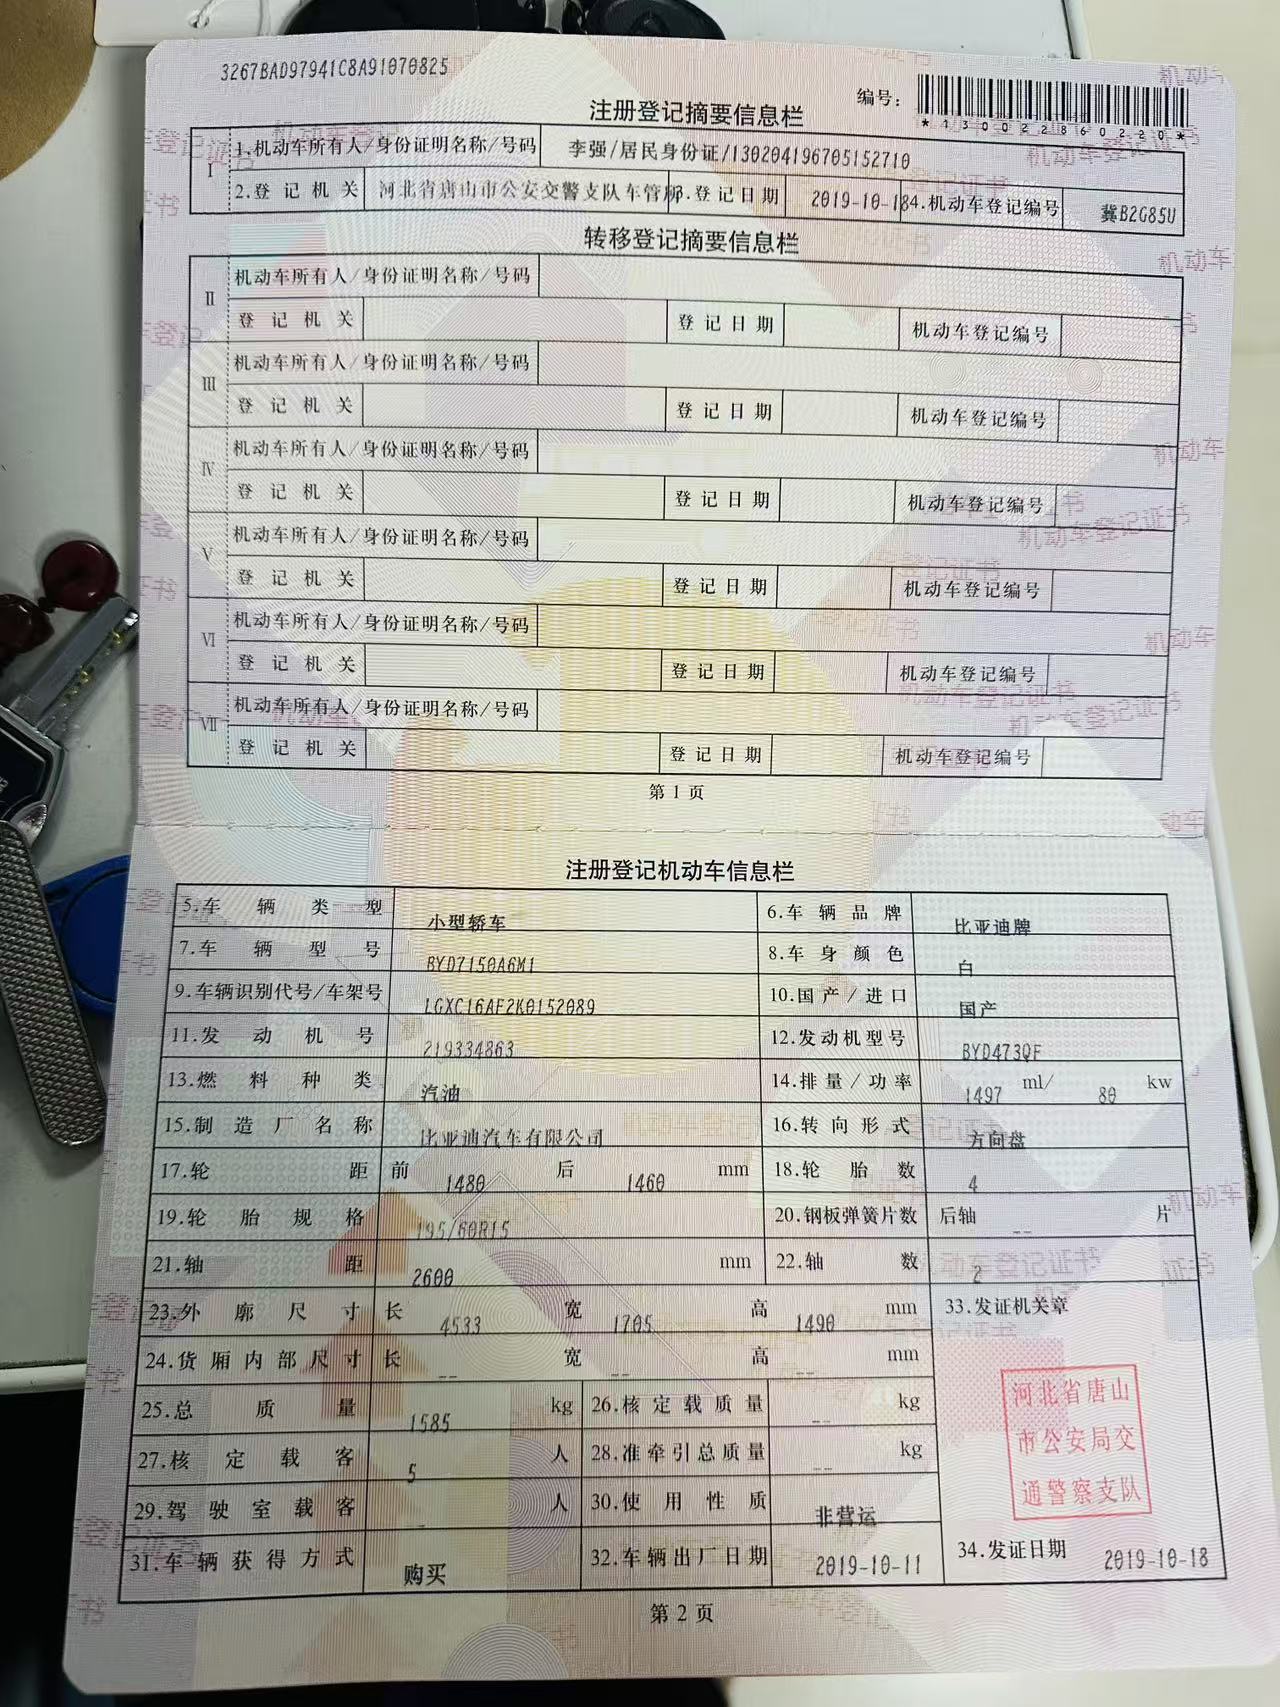 3267BAD97941C8A91070825
编号：
*130022860220*
注册登记摘要信息栏
Ⅰ 1.机动车所有人/身份证明名称/号码 李强/居民身份证/130204196705152710
2.登记机关 河北省唐山市公安交警支队车管所 3.登记日期 2019-10-18 4.机动车登记编号 冀B2G85U
转移登记摘要信息栏
Ⅱ 机动车所有人/身份证明名称/号码
登记机关 登记日期 机动车登记编号
Ⅲ 机动车所有人/身份证明名称/号码
登记机关 登记日期 机动车登记编号
Ⅳ 机动车所有人/身份证明名称/号码
登记机关 登记日期 机动车登记编号
Ⅴ 机动车所有人/身份证明名称/号码
登记机关 登记日期 机动车登记编号
Ⅵ 机动车所有人/身份证明名称/号码
登记机关 登记日期 机动车登记编号
Ⅶ 机动车所有人/身份证明名称/号码
登记机关 登记日期 机动车登记编号
第1页
注册登记机动车信息栏
5.车辆类型 小型轿车 6.车辆品牌 比亚迪牌
7.车辆型号 BYD7150A6M1 8.车身颜色 白
9.车辆识别代号/车架号 LGXC16AF2K0152089 10.国产/进口 国产
11.发动机号 219334863 12.发动机型号 BYD473QF
13.燃料种类 汽油 14.排量/功率 1497 ml/ 80 kw
15.制造厂名称 比亚迪汽车有限公司 16.转向形式 方向盘
17.轮距 前 1480 后 1460 mm 18.轮胎数 4
19.轮胎规格 195/60R15 20.钢板弹簧片数 后轴 -- 片
21.轴距 2600 mm 22.轴数 2
23.外廓尺寸 长 4533 宽 1705 高 1490 mm 33.发证机关章
24.货厢内部尺寸 长 -- 宽 -- 高 -- mm
25.总质量 1585 kg 26.核定载质量 -- kg
河北省唐山
市公安局交
通警察支队
27.核定载客 5 人 28.准牵引总质量 -- kg
29.驾驶室载客 - 人 30.使用性质 非营运
31.车辆获得方式 购买 32.车辆出厂日期 2019-10-11 34.发证日期 2019-10-18
第2页